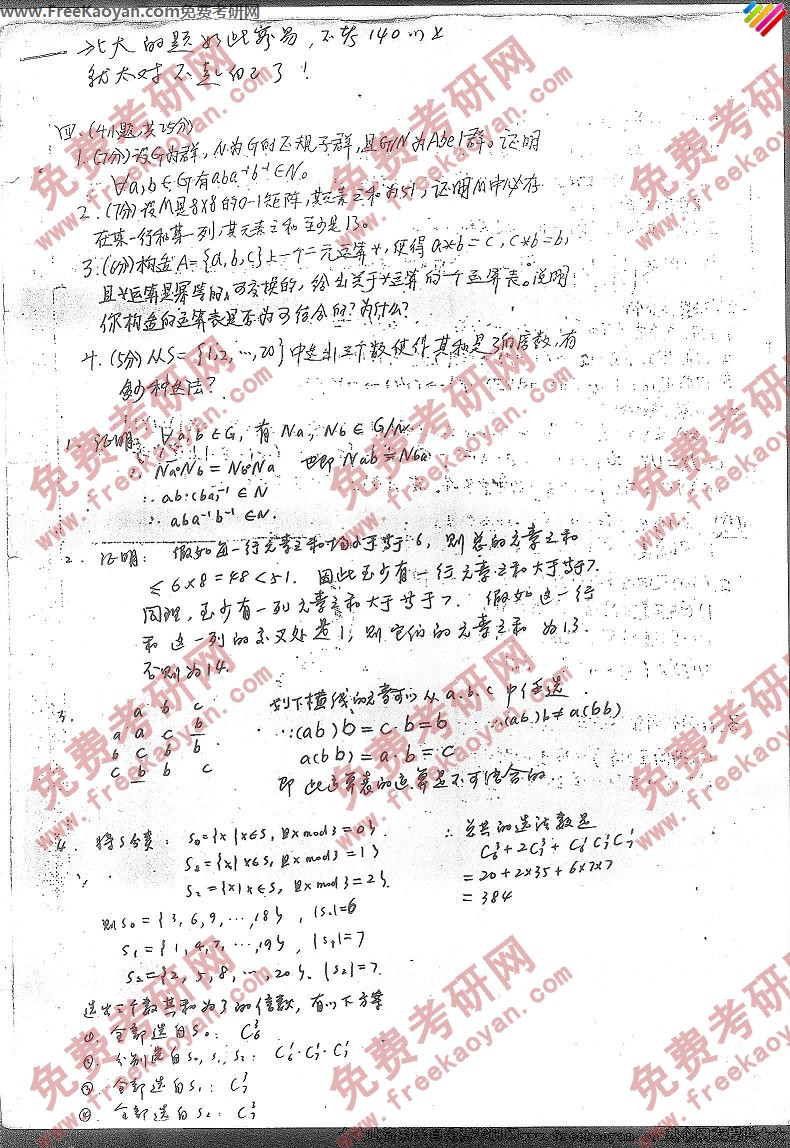 www.FreeKaoyan.com免费考研网
北大的题如此容易,不考140以上
就太对不起自己了!
四.(4小题,共25分)
1.(7分)设G为群,N为G的正规子群,且G/N为Abel群。证明
∀a,b∈G有aba⁻¹b⁻¹∈N。
2.(7分)设M是8×8的0-1矩阵,其元素之和为51,证明M中必存
在某一行和某一列,其元素之和至少是13。
3.(6分)构造A={a,b,c}上一个二元运算*,使得a*b=c,c*b=b,
且*运算是幂等的,可交换的,给出关于*运算的一个运算表。说明
你构造的运算表是否为可结合的?为什么?
4.(5分)从S={1,2,…,20}中选出三个数使得其和是3的倍数,有
多少种选法?
1. 证明: ∀a,b∈G,有Na,Nb∈G/N
∴ Na·Nb=Nb·Na 也即Nab=Nba
∴ ab·(ba)⁻¹∈N
∴ aba⁻¹b⁻¹∈N.
2. 证明: 假如每一行元素之和均小于等于6,则总的元素之和
≤6×8=48<51. 因此至少有一行元素之和大于等于7.
同理,至少有一列元素之和大于等于7. 假如这一行
和这一列的交叉处是1,则它们的元素之和为13.
否则为14.
3. a b c
a a c b
b c b b
c b b c
划下横线的元素可以从a.b.c中任选
∵(ab)b=c·b=b ∴(ab)b≠a(bb)
a(bb)=a·b=c
即此运算表的运算是不可结合的.
4. 将S分类: S₀={x|x∈S,且x mod 3=0}.
S₁={x|x∈S,且x mod 3=1}
S₂={x|x∈S,且x mod 3=2}.
则S₀={3,6,9,…,18},|S₀|=6
S₁={1,4,7,…,19},|S₁|=7
S₂={2,5,8,…,20}.|S₂|=7.
选出三个数其和为3的倍数,有以下方案
①.全部选自S₀: C₆³
②.分别选自S₀,S₁,S₂: C₆¹·C₇¹·C₇¹
③.全部选自S₁: C₇³
④.全部选自S₂: C₇³
∴总共的选法数是
C₆³+2C₇³+C₆¹C₇¹C₇¹
=20+2×35+6×7×7
=384
免费考研网
www.freekaoyan.com